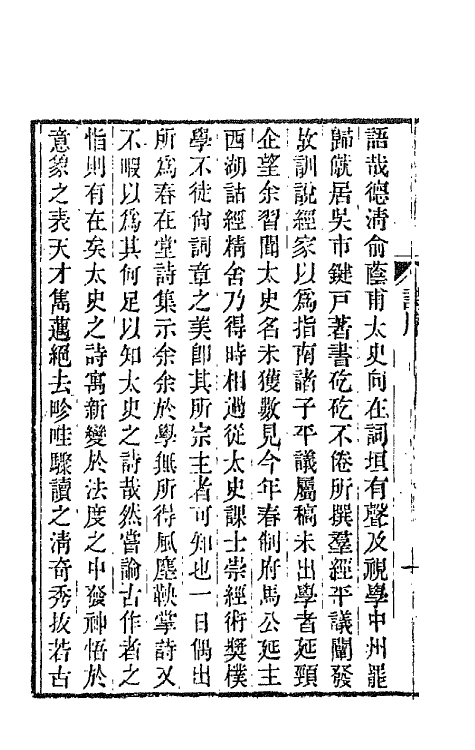 語哉德清俞蔭甫太史向在詞垣有聲及視學中州罷
歸僦居吳市鍵戸著書矻矻不倦所撰羣經平議闡發
故訓說經家以爲指南諸子平議屬稿未出學者延頸
企望余習聞太史名未獲數見今年春制府馬公延主
西湖詁經精舍乃得時相過從太史課士崇經術獎樸
學不徒尙詞章之美卽其所宗主者可知也一日偶出
所爲春在堂詩集示余余於學無所得風塵鞅掌詩又
不暇以爲其何足以知太史之詩哉然嘗論古作者之
恉則有在矣太史之詩寓新變於法度之中發神悟於
意象之表天才雋邁絕去畛畦驟讀之淸奇秀拔若古